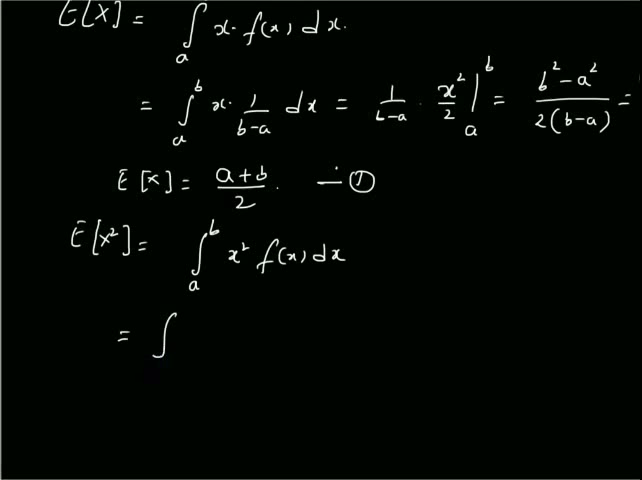 E[X] = ∫ₐ x· f(x) dx.
= ∫ₐᵇ x· 1/(b-a) dx = 1/(b-a) · x²/2 |ₐᵇ = (b²-a²)/(2(b-a)) =
E[X] = (a+b)/2. — ①
E[X²] = ∫ₐᵇ x² f(x) dx
= ∫